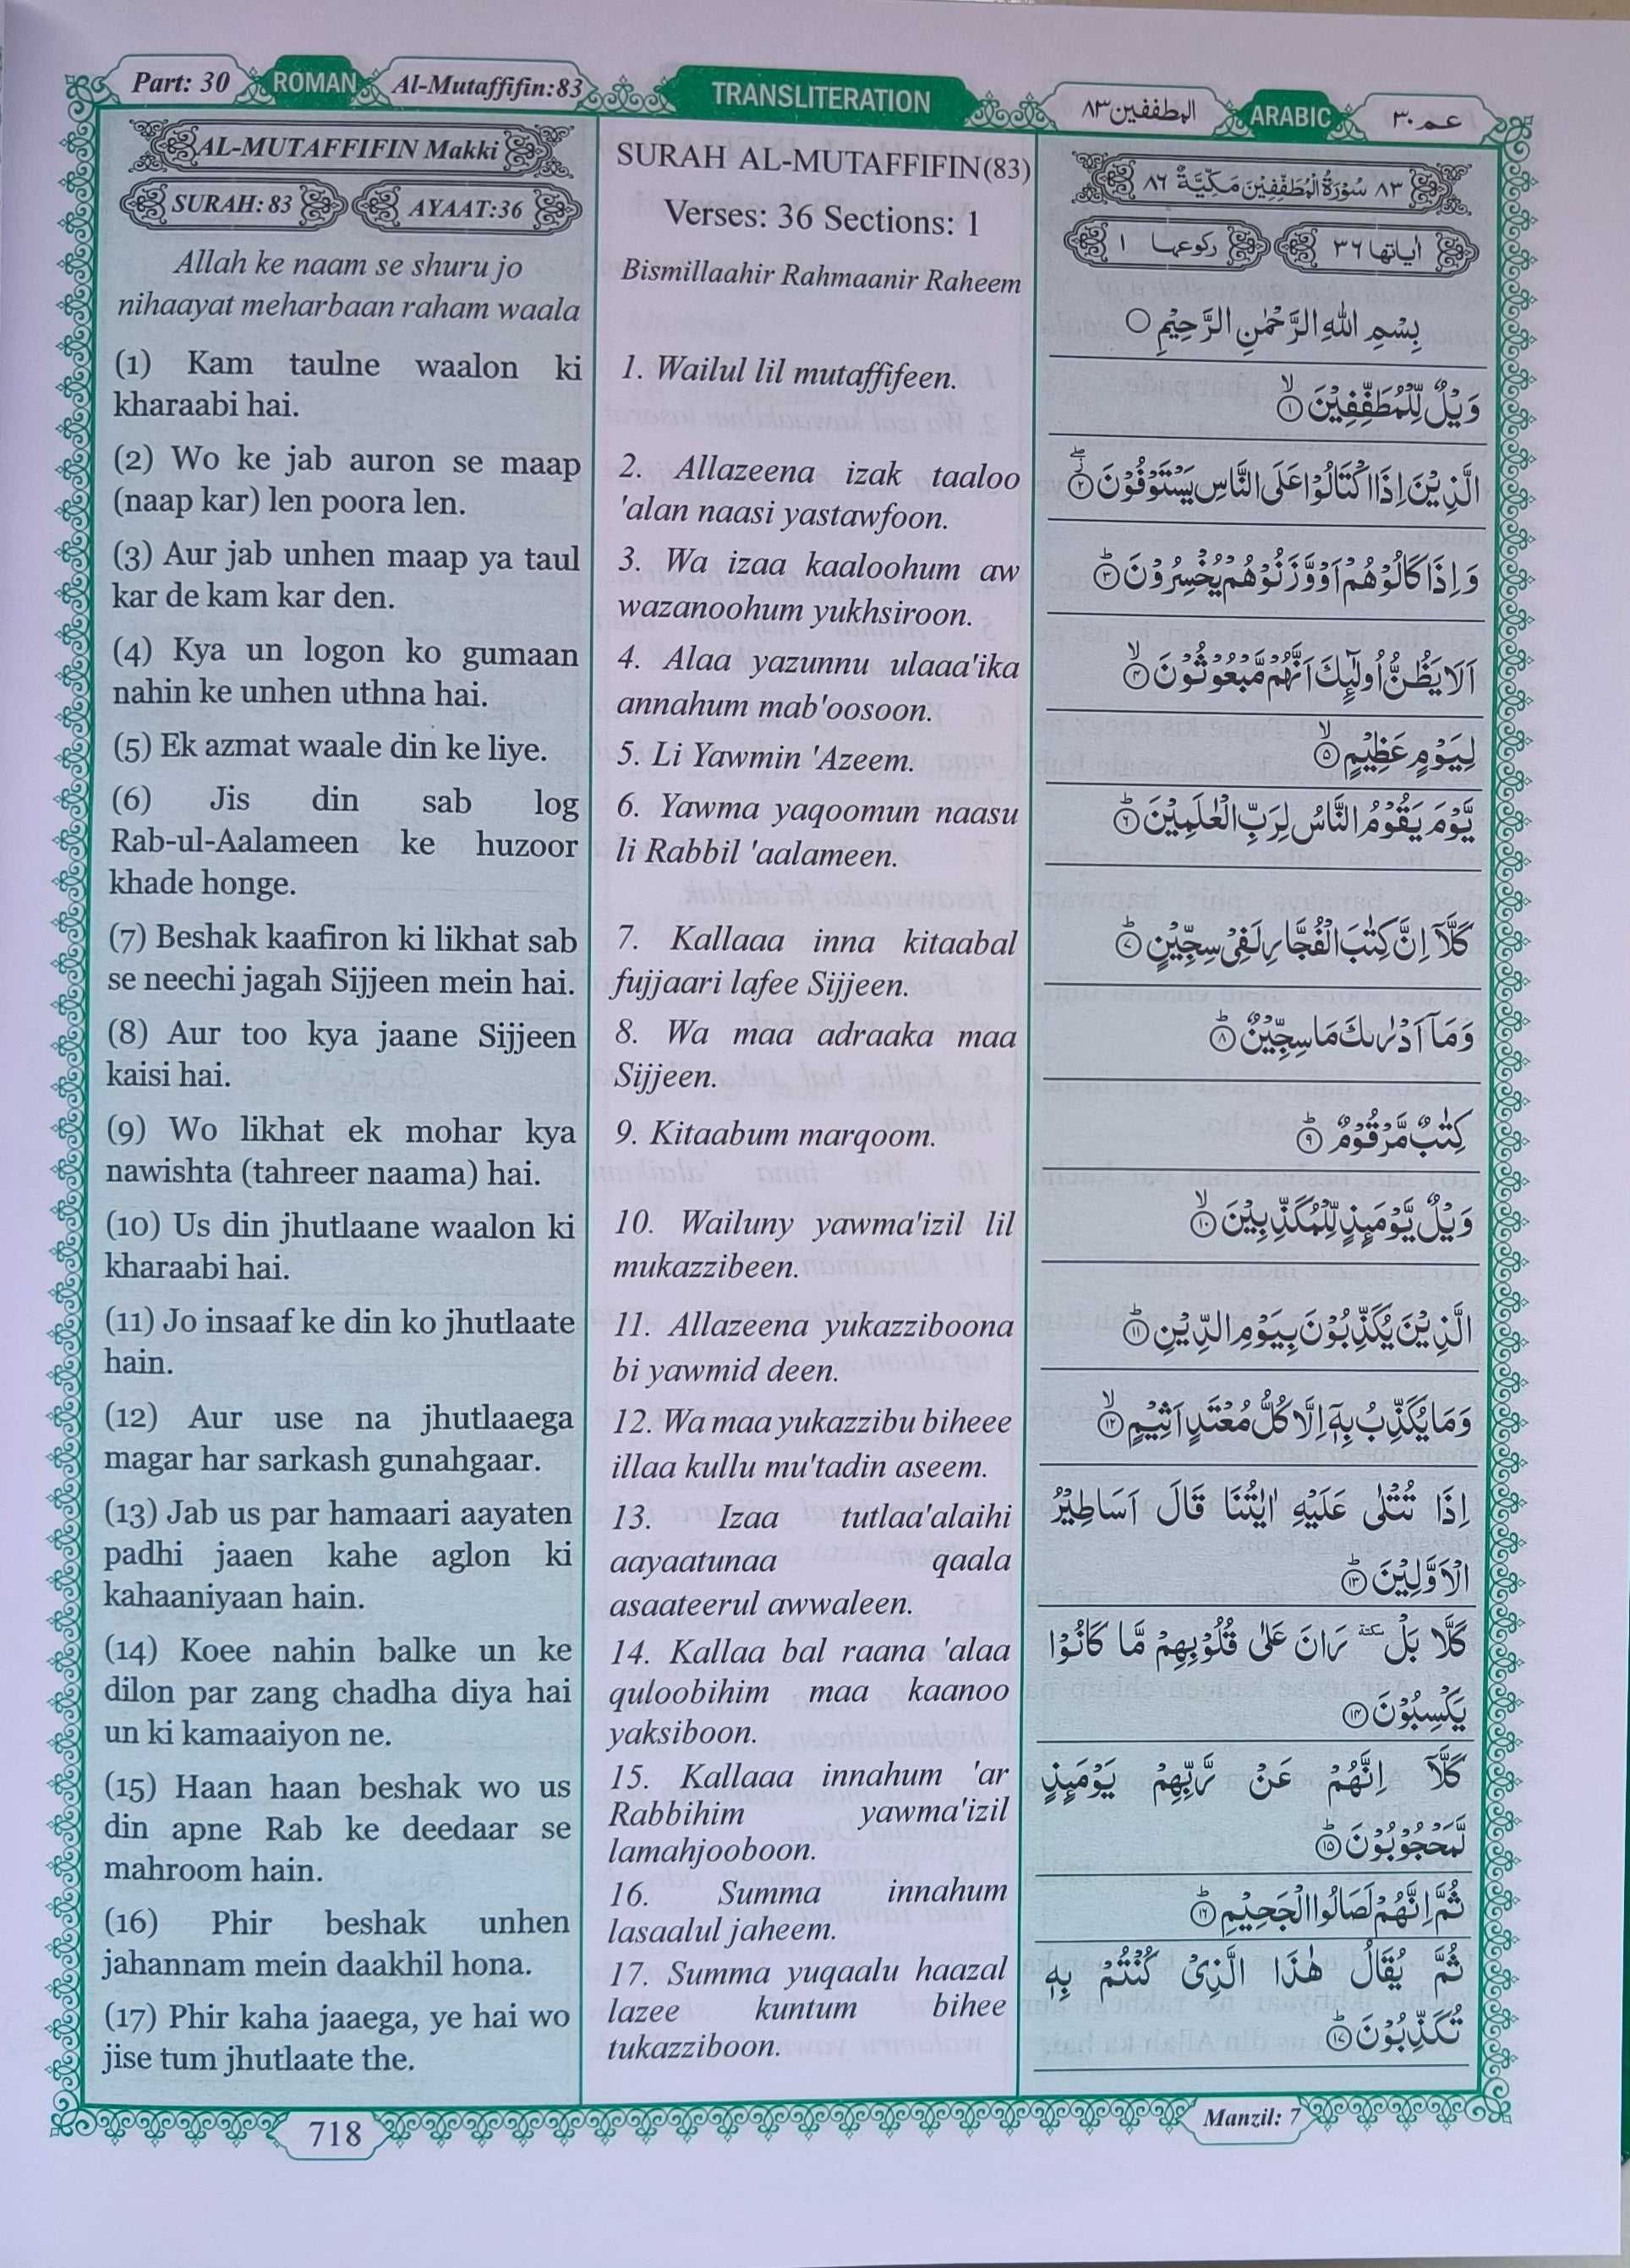 Part: 30
ROMAN
Al-Mutaffifin:83
TRANSLITERATION
المطففين ٨٣
ARABIC
عم ٣٠
AL-MUTAFFIFIN Makki
SURAH: 83
AYAAT:36
Allah ke naam se shuru jo
nihaayat meharbaan raham waala
(1) Kam taulne waalon ki
kharaabi hai.
(2) Wo ke jab auron se maap
(naap kar) len poora len.
(3) Aur jab unhen maap ya taul
kar de kam kar den.
(4) Kya un logon ko gumaan
nahin ke unhen uthna hai.
(5) Ek azmat waale din ke liye.
(6) Jis din sab log
Rab-ul-Aalameen ke huzoor
khade honge.
(7) Beshak kaafiron ki likhat sab
se neechi jagah Sijjeen mein hai.
(8) Aur too kya jaane Sijjeen
kaisi hai.
(9) Wo likhat ek mohar kya
nawishta (tahreer naama) hai.
(10) Us din jhutlaane waalon ki
kharaabi hai.
(11) Jo insaaf ke din ko jhutlaate
hain.
(12) Aur use na jhutlaaega
magar har sarkash gunahgaar.
(13) Jab us par hamaari aayaten
padhi jaaen kahe aglon ki
kahaaniyaan hain.
(14) Koee nahin balke un ke
dilon par zang chadha diya hai
un ki kamaaiyon ne.
(15) Haan haan beshak wo us
din apne Rab ke deedaar se
mahroom hain.
(16) Phir beshak unhen
jahannam mein daakhil hona.
(17) Phir kaha jaaega, ye hai wo
jise tum jhutlaate the.
SURAH AL-MUTAFFIFIN(83)
Verses: 36 Sections: 1
Bismillaahir Rahmaanir Raheem
1. Wailul lil mutaffifeen.
2. Allazeena izak taaloo
'alan naasi yastawfoon.
3. Wa izaa kaaloohum aw
wazanoohum yukhsiroon.
4. Alaa yazunnu ulaaa'ika
annahum mab'oosoon.
5. Li Yawmin 'Azeem.
6. Yawma yaqoomun naasu
li Rabbil 'aalameen.
7. Kallaaa inna kitaabal
fujjaari lafee Sijjeen.
8. Wa maa adraaka maa
Sijjeen.
9. Kitaabum marqoom.
10. Wailuny yawma'izil lil
mukazzibeen.
11. Allazeena yukazziboona
bi yawmid deen.
12. Wa maa yukazzibu biheee
illaa kullu mu'tadin aseem.
13. Izaa tutlaa'alaihi
aayaatunaa qaala
asaateerul awwaleen.
14. Kallaa bal raana 'alaa
quloobihim maa kaanoo
yaksiboon.
15. Kallaaa innahum 'ar
Rabbihim yawma'izil
lamahjooboon.
16. Summa innahum
lasaalul jaheem.
17. Summa yuqaalu haazal
lazee kuntum bihee
tukazziboon.
٨٣ سُوْرَةُ الْمُطَفِّفِيْنَ مَكِّيَّةٌ ٨٦
اٰیاتها ٣٦
ركوعها ١
بِسْمِ اللّٰهِ الرَّحْمٰنِ الرَّحِيْمِ ○
وَيْلٌ لِّلْمُطَفِّفِيْنَ ۙ‏﴿۱﴾
الَّذِيْنَ اِذَا اكْتَالُوْا عَلَى النَّاسِ يَسْتَوْفُوْنَ ۖ‏﴿۲﴾
وَاِذَا كَالُوْهُمْ اَوْ وَّزَنُوْهُمْ يُخْسِرُوْنَ ؕ‏﴿۳﴾
اَلَا يَظُنُّ اُولٰٓئِكَ اَنَّهُمْ مَّبْعُوْثُوْنَ ۙ‏﴿۴﴾
لِيَوْمٍ عَظِيْمٍ ۙ‏﴿۵﴾
يَّوْمَ يَقُوْمُ النَّاسُ لِرَبِّ الْعٰلَمِيْنَ ؕ‏﴿۶﴾
كَلَّاۤ اِنَّ كِتٰبَ الْفُجَّارِ لَفِىْ سِجِّيْنٍ ؕ‏﴿۷﴾
وَمَاۤ اَدْرٰٮكَ مَا سِجِّيْنٌ ؕ‏﴿۸﴾
كِتٰبٌ مَّرْقُوْمٌ ؕ‏﴿۹﴾
وَيْلٌ يَّوْمَئِذٍ لِّلْمُكَذِّبِيْنَ ۙ‏﴿۱۰﴾
الَّذِيْنَ يُكَذِّبُوْنَ بِيَوْمِ الدِّيْنِ ؕ‏﴿۱۱﴾
وَمَا يُكَذِّبُ بِهٖۤ اِلَّا كُلُّ مُعْتَدٍ اَثِيْمٍ ۙ‏﴿۱۲﴾
اِذَا تُتْلٰى عَلَيْهِ اٰيٰتُنَا قَالَ اَسَاطِيْرُ
الْاَوَّلِيْنَ ؕ‏﴿۱۳﴾
كَلَّا بَلْ ٚ رَانَ عَلٰى قُلُوْبِهِمْ مَّا كَانُوْا
يَكْسِبُوْنَ‏﴿۱۴﴾
كَلَّاۤ اِنَّهُمْ عَنْ رَّبِّهِمْ يَوْمَئِذٍ
لَّمَحْجُوْبُوْنَ ؕ‏﴿۱۵﴾
ثُمَّ اِنَّهُمْ لَصَالُوا الْجَحِيْمِ ؕ‏﴿۱۶﴾
ثُمَّ يُقَالُ هٰذَا الَّذِىْ كُنْتُمْ بِهٖ
تُكَذِّبُوْنَ ؕ‏﴿۱۷﴾
718
Manzil: 7